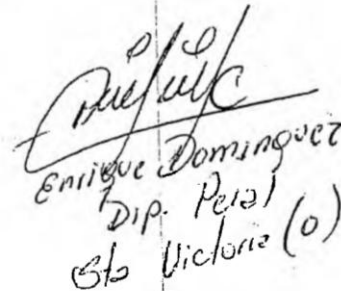 Enrique Dominguez
Dip. Peral
Sta Victoria (O)